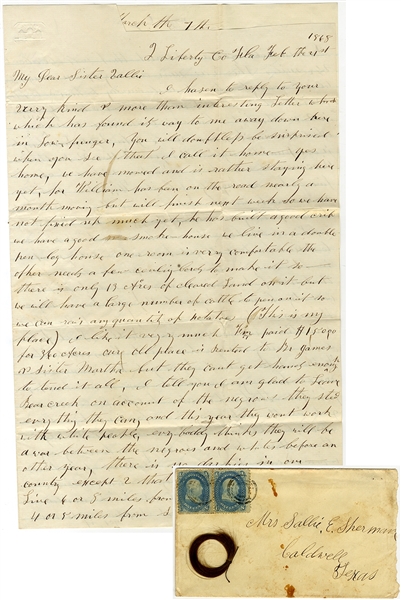 March the 7th
1868
Liberty Co Fla Feb the 21st
My Dear Sister Sallie
I hasen to reply to your
very kind & more than interesting letter
which has found its way to me away down here
in You will doubtless be surprised
when you see that I call it home yes
home, we have moved and is rather staying here
yet, for William has ben on the road nearly a
month moving but will finish next week so we have
not fixed up much yet, he has built a good crib
we have a good smoke house we live in a double
pen log house one room is very comfortable the
other needs a few boards to make it so
there is only 13 Acres of cleared Land on it but
we will have a large number of cattle to pen on it so
we can rais any quantity of potatoes (This is my
place) I like it very much Wm paid $1,500
for acres our old place is rented to Br James
& Sister Martha but they cant get hands enough
to tend it all, I tell you I am glad to leave
creek on account of the negroes they
every thing they can, and this year they wont work
with white people, evry boddy thinks they will be
a war between the negroes and whites before an
other year, there is no in our
county except 2 that
Live 4 or 5 miles from
4 or 5 miles from
Mrs Sallie, E. Sherman
Caldwell
Texas